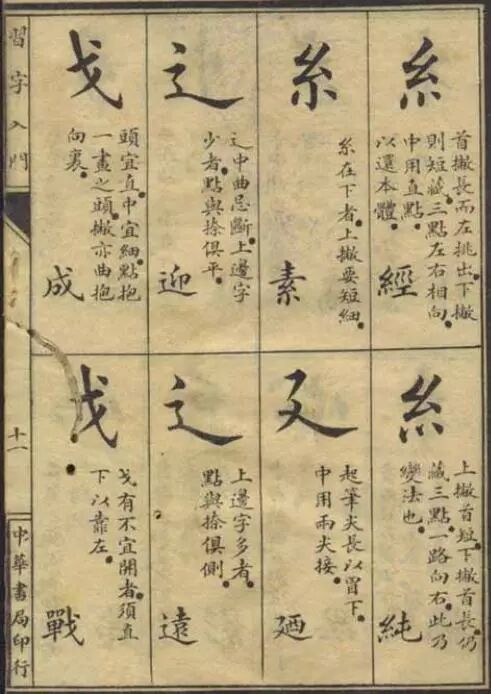 糹
首撇長而左挑出。下撇
則短藏。三點左右相向。
中用直點。
以還本體。
經
糸
糸在下者。上撇要短細。
素
辶
辶中曲忌斷。上邊字
少者。點與捺俱平。
迎
戈
頭宜直。中宜細。點抱
一畫之頭。撇亦曲抱
向裏。
成
糹
上撇首短。下撇首長。仍
藏三點。一路向右。此乃
變法也。
純
廴
起筆尖長以冒下。
中用兩尖接。
廼
辶
上邊字多者。
點與捺俱側。
遠
戈
戈有不宜開者。須直
下以靠左。
戰
習字入門
十一
中華書局印行